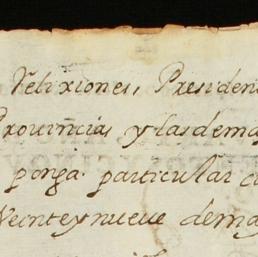 Relixiones, Presiden
Prouincias y lasdema
ponga particular c
Veinteynueue dema